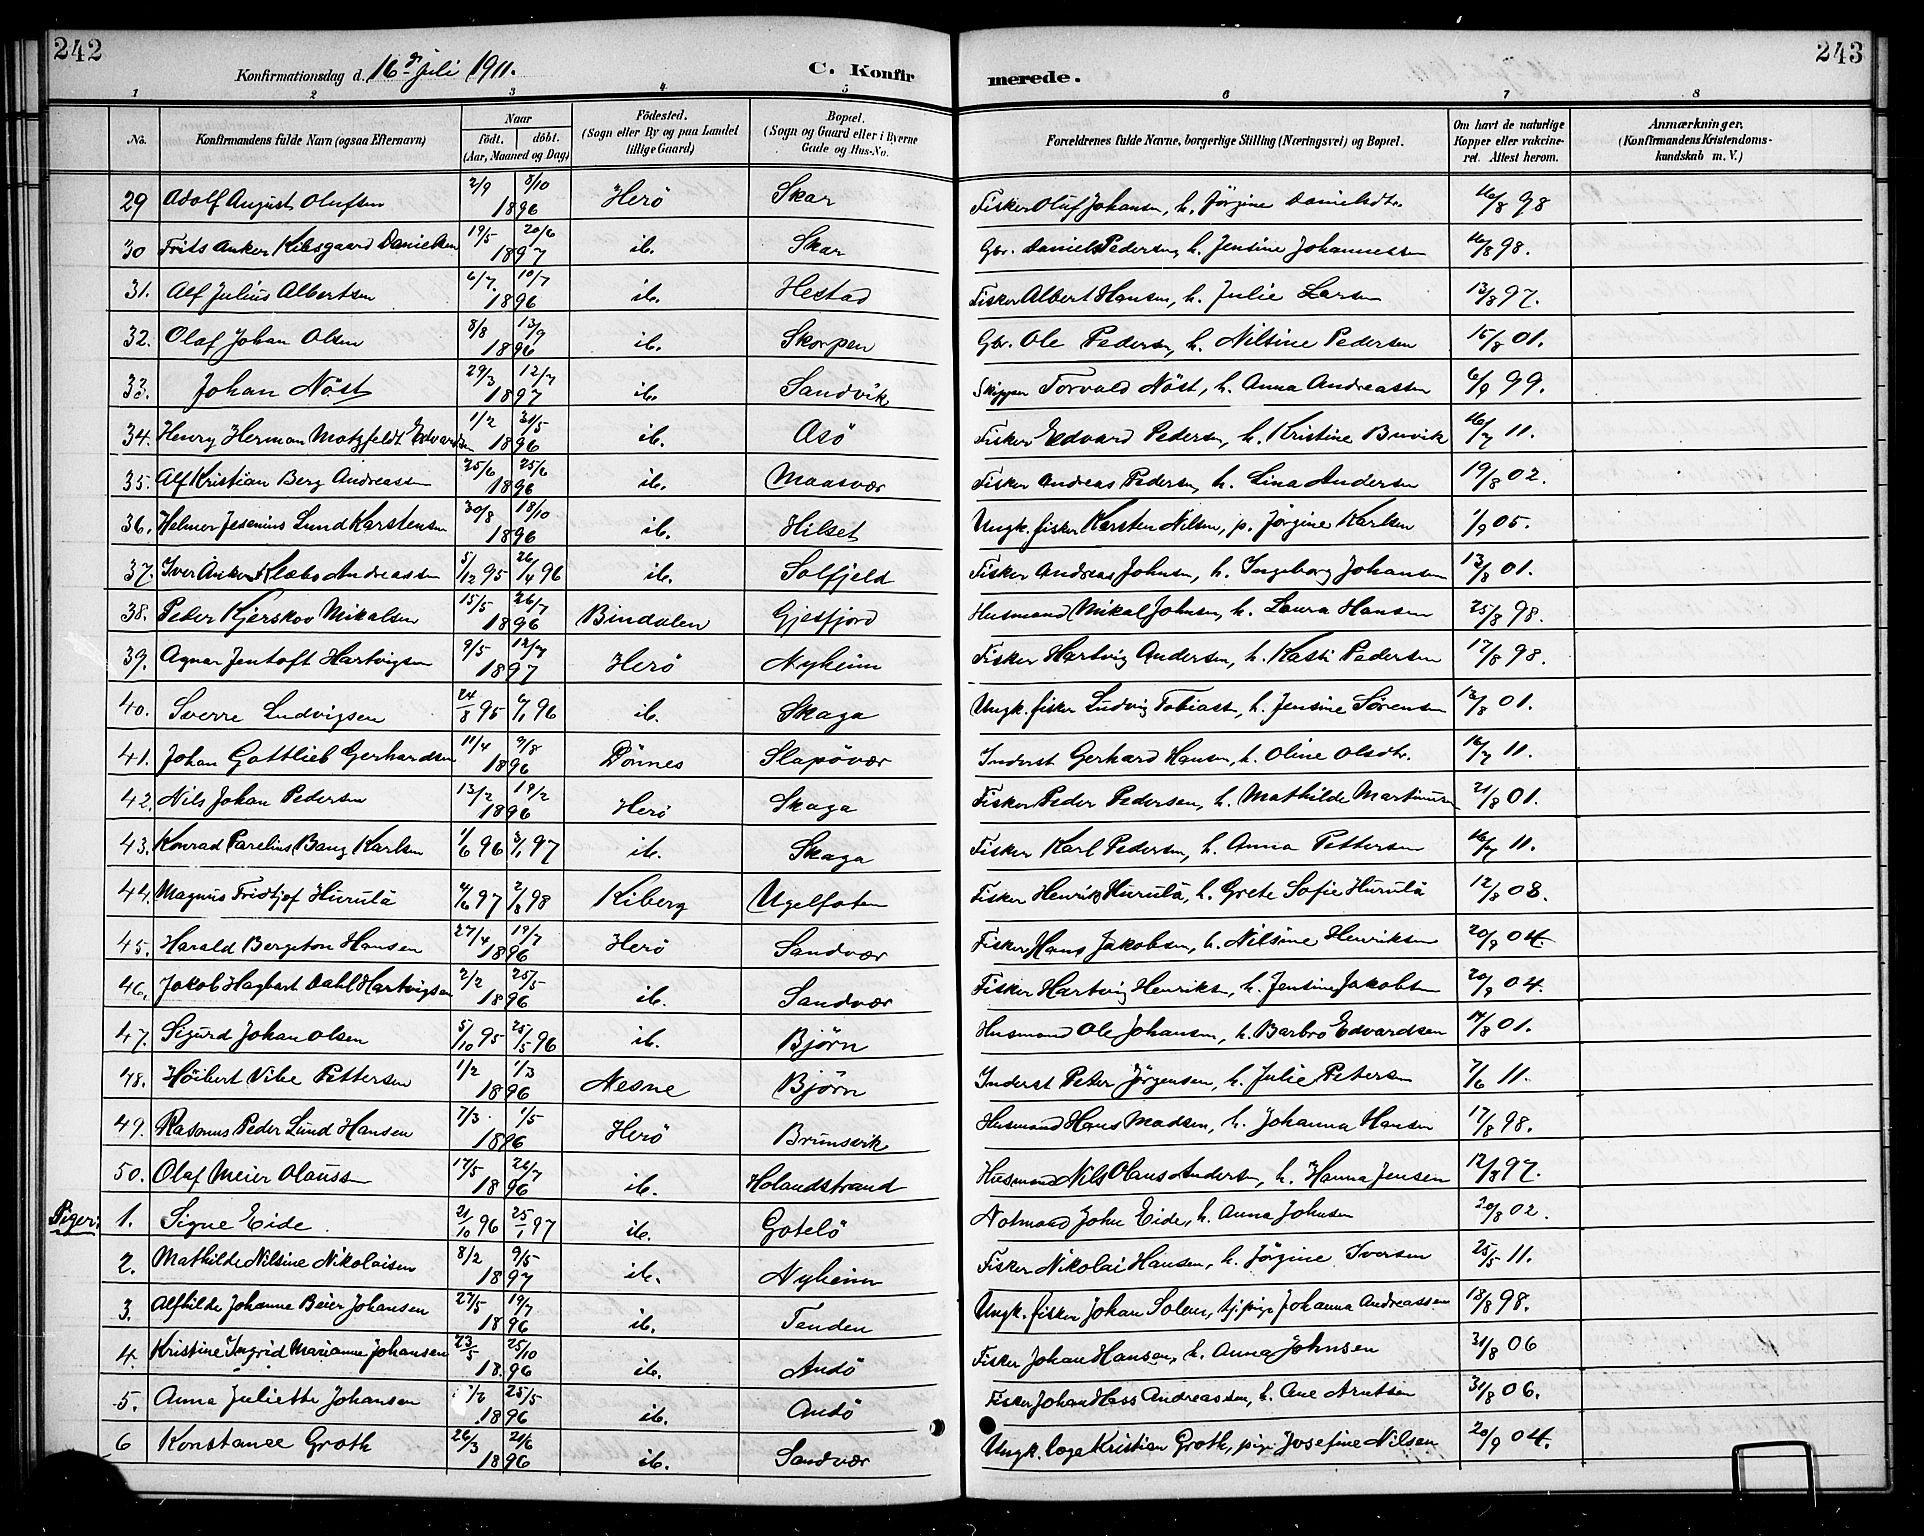 242
243
Konfirmationsdag d. 16de Juli 1911.
C. Konfirmerede.
1 2 3 4 5 6 7 8
No. | Konfirmandens fulde Navn (ogsaa Efternavn) | Naar födt. döbt. (Aar, Maaned og Dag) | Födested. (Sogn eller By og paa Landet tillige Gaard) | Bopæl. (Sogn og Gaard eller i Byerne Gade og Hus-No. | Forældrenes fulde Navne, borgerlige Stilling (Næringsvei) og Bopæl. | Om havt de naturlige Kopper eller vakcineret. Attest herom. | Anmærkninger, (Konfirmandens Kristendomskundskab m. V.)
29 Adolf August Olufsen 2/9 8/10 1896 Herö Skar Fisker Oluf Johansen, h. Jörgine Danielsdtr. 16/8 98
30 Frits Anker Kilsgaard Danielsen 19/5 20/6 1897 ib. Skar Gbr. Daniel Pedersen, h. Jensine Johannessen 16/8 98.
31. Alf Julius Albertsen 6/7. 10/7 1896 ib. Hestad Fisker Albert Hansen, h. Julie Larsen 13/8 97.
32. Olaf Johan Olsen 8/8 13/9 1896 ib. Skorpen Gbr. Ole Pedersen, h. Nilsine Pedersen 15/8 01.
33. Johan Nöst 29/3 12/7 1897 ib. Sandvik Skipper Torvald Nöst, h. Anna Andreassen 6/9 99.
34. Henry Herman Motzfeldt Edvardsen 1/2 31/5 1896 ib. Asö Fisker Edvard Pedersen, h. Kristine Buvik 16/7 11.
35. Alf Kristian Berg Andreassen 25/6 25/6 1896 ib. Maasvær Fisker Andreas Pedersen, h. Lina Andersen 19/8 02.
36. Helmer Jesenius Lund Karstensen 30/8 18/10 1896 ib. Hilset Ungk. fisker Karsten Nilsen, p. Jörgine Karlsen 1/9 05.
37. Iver Anker Klæbo Andreassen 5/12 95 26/4 96 ib. Solfjeld Fisker Andreas Johnsen, h. Ingeborg Johansen 13/8 01.
38. Peder Kjerskov Mikalsen 15/5 26/7 1896 Bindalen Gjesfjord Husmand Mikal Johnsen, h. Laura Hansen 25/8 98.
39. Agnar Jentoft Hartvigsen 9/5 12/7 1897 Herö Nyheim Fisker Hartvig Andersen, h. Kasti Pedersen 17/8 98.
40. Sverre Ludvigsen 24/8 95 6/1 96 ib. Skaga Ungk. fisker Ludvig Tobiassen, h. Jensine Sörensen 13/8 01.
41. Johan Gottlieb Gerhardsen 11/4 9/8 1896 Dönnes Slapövær Inderst Gerhard Hansen, h. Oline Olsdtr. 16/7 11.
42. Nils Johan Pedersen 13/2 19/2 1896 Herö Skaga Fisker Peder Pedersen, h. Mathilde Martinusen 21/8 01.
43. Konrad Parelius Bang Karlsen 1/6 96 3/1 97 ib. Skaga Fisker Karl Pedersen, h. Anna Pettersen 16/7 11.
44. Magnus Fridtjof Hurula 97 2/8 98 Kiberg Ugelfoten Fisker Henrik Hurula, h. Grete Sofie Hurula 12/8 08.
45. Harald Bergeton Hansen 27/4 19/7 1896 Herö Sandvær Fisker Hans Jakobsen, h. Nilsine Henriksen 20/9 04.
46. Jakob Hagbart Dahl Hartvigsen 2/2 25/5 1896 ib. Sandvær Fisker Hartvig Henriksen, h. Jensine Jakobsen 20/9 04.
47. Sigurd Johan Olsen 5/10 95 25/5 96 ib. Björn Husmand Ole Johansen, h. Barbro Edvardsen 14/8 01.
48. Höibert Vibe Pettersen 1/2 1/3 1896 Nesne Björn Inderst Peter Jörgensen, h. Julie Petersen 7/6 11.
49. Rasmus Peder Lund Hansen 7/3. 1/5 1896 Herö Brunsvik Husmand Hans Madsen, h. Johanna Hansen 17/8 98.
50. Olaf Meier Olaussen 17/5 26/7 1896 ib. Holandstrand Husmand Nils Olaus Andersen, h. Hanna Jensen 12/8 97.
Piger: 1. Signe Eide. 21/10 96 25/1 97 ib. Gotelö Notmand John Eide, h. Anna Johnsen 20/8 02.
2. Mathilde Nilsine Nikolaisen 8/2 9/5 1897 ib. Nyheim Fisker Nikolai Hansen, h. Jörgine Iversen 25/5 11.
3. Alfhilde Johanne Beier Johansen 27/5 19/7 1896 ib. Tenden Ungk. fisker Johan Solem, tj. pige Johanna Andreassen 18/8 98.
4. Kristine Ingrid Marianne Johansen 23/5 25/10 1896 ib. Andö Fisker Johan Hansen, h. Anna Johnsen 31/8 06
5. Anna Juliette Johansen /2 25/5 1896 ib. Andö Fisker Johan Hess Andreassen, h. Ane Arntsen 31/8 06.
6 Konstance Groth 26/3 21/6 1896 ib. Sandvær Ungk. læge Kristian Groth, pige Josefine Nilsen 20/9 04.